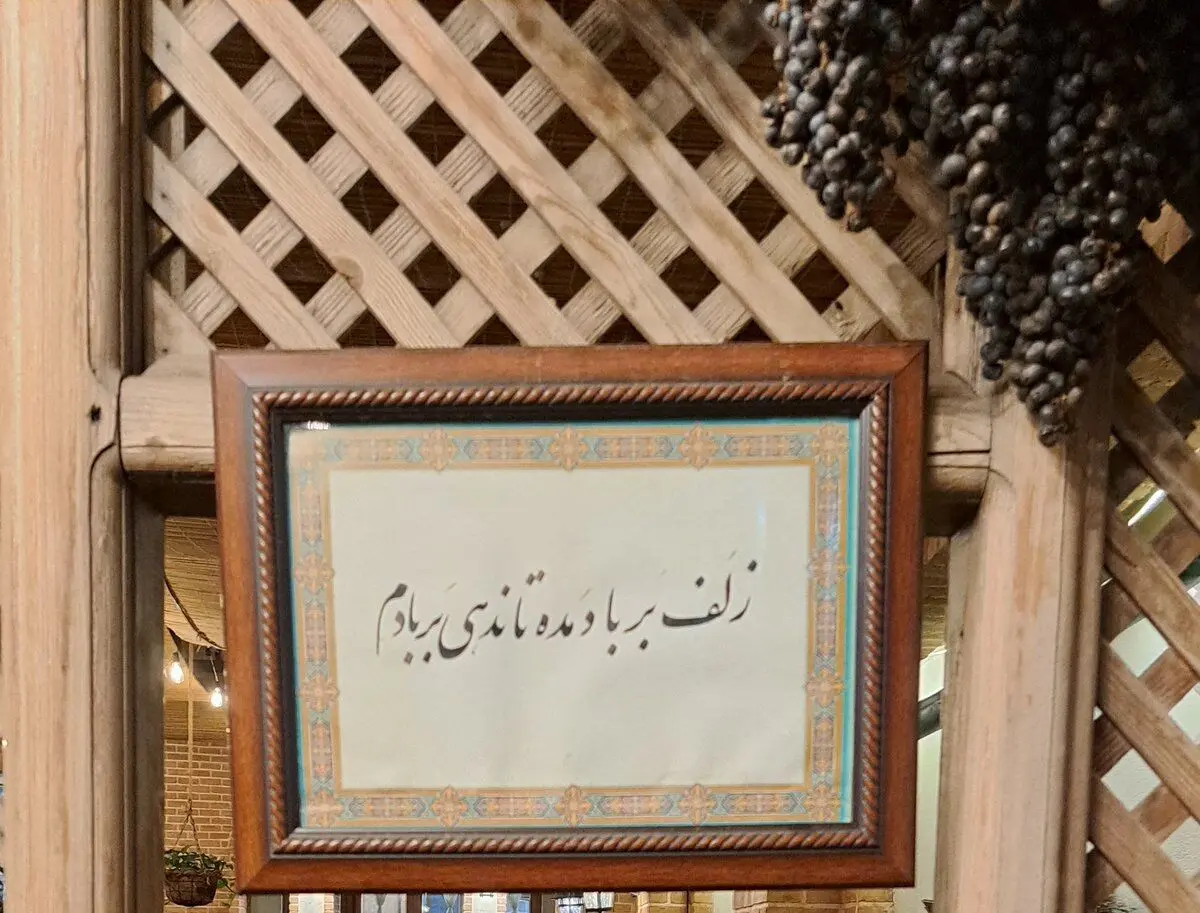 زلَف بَر باد مَده تا ندهی بَر بادم